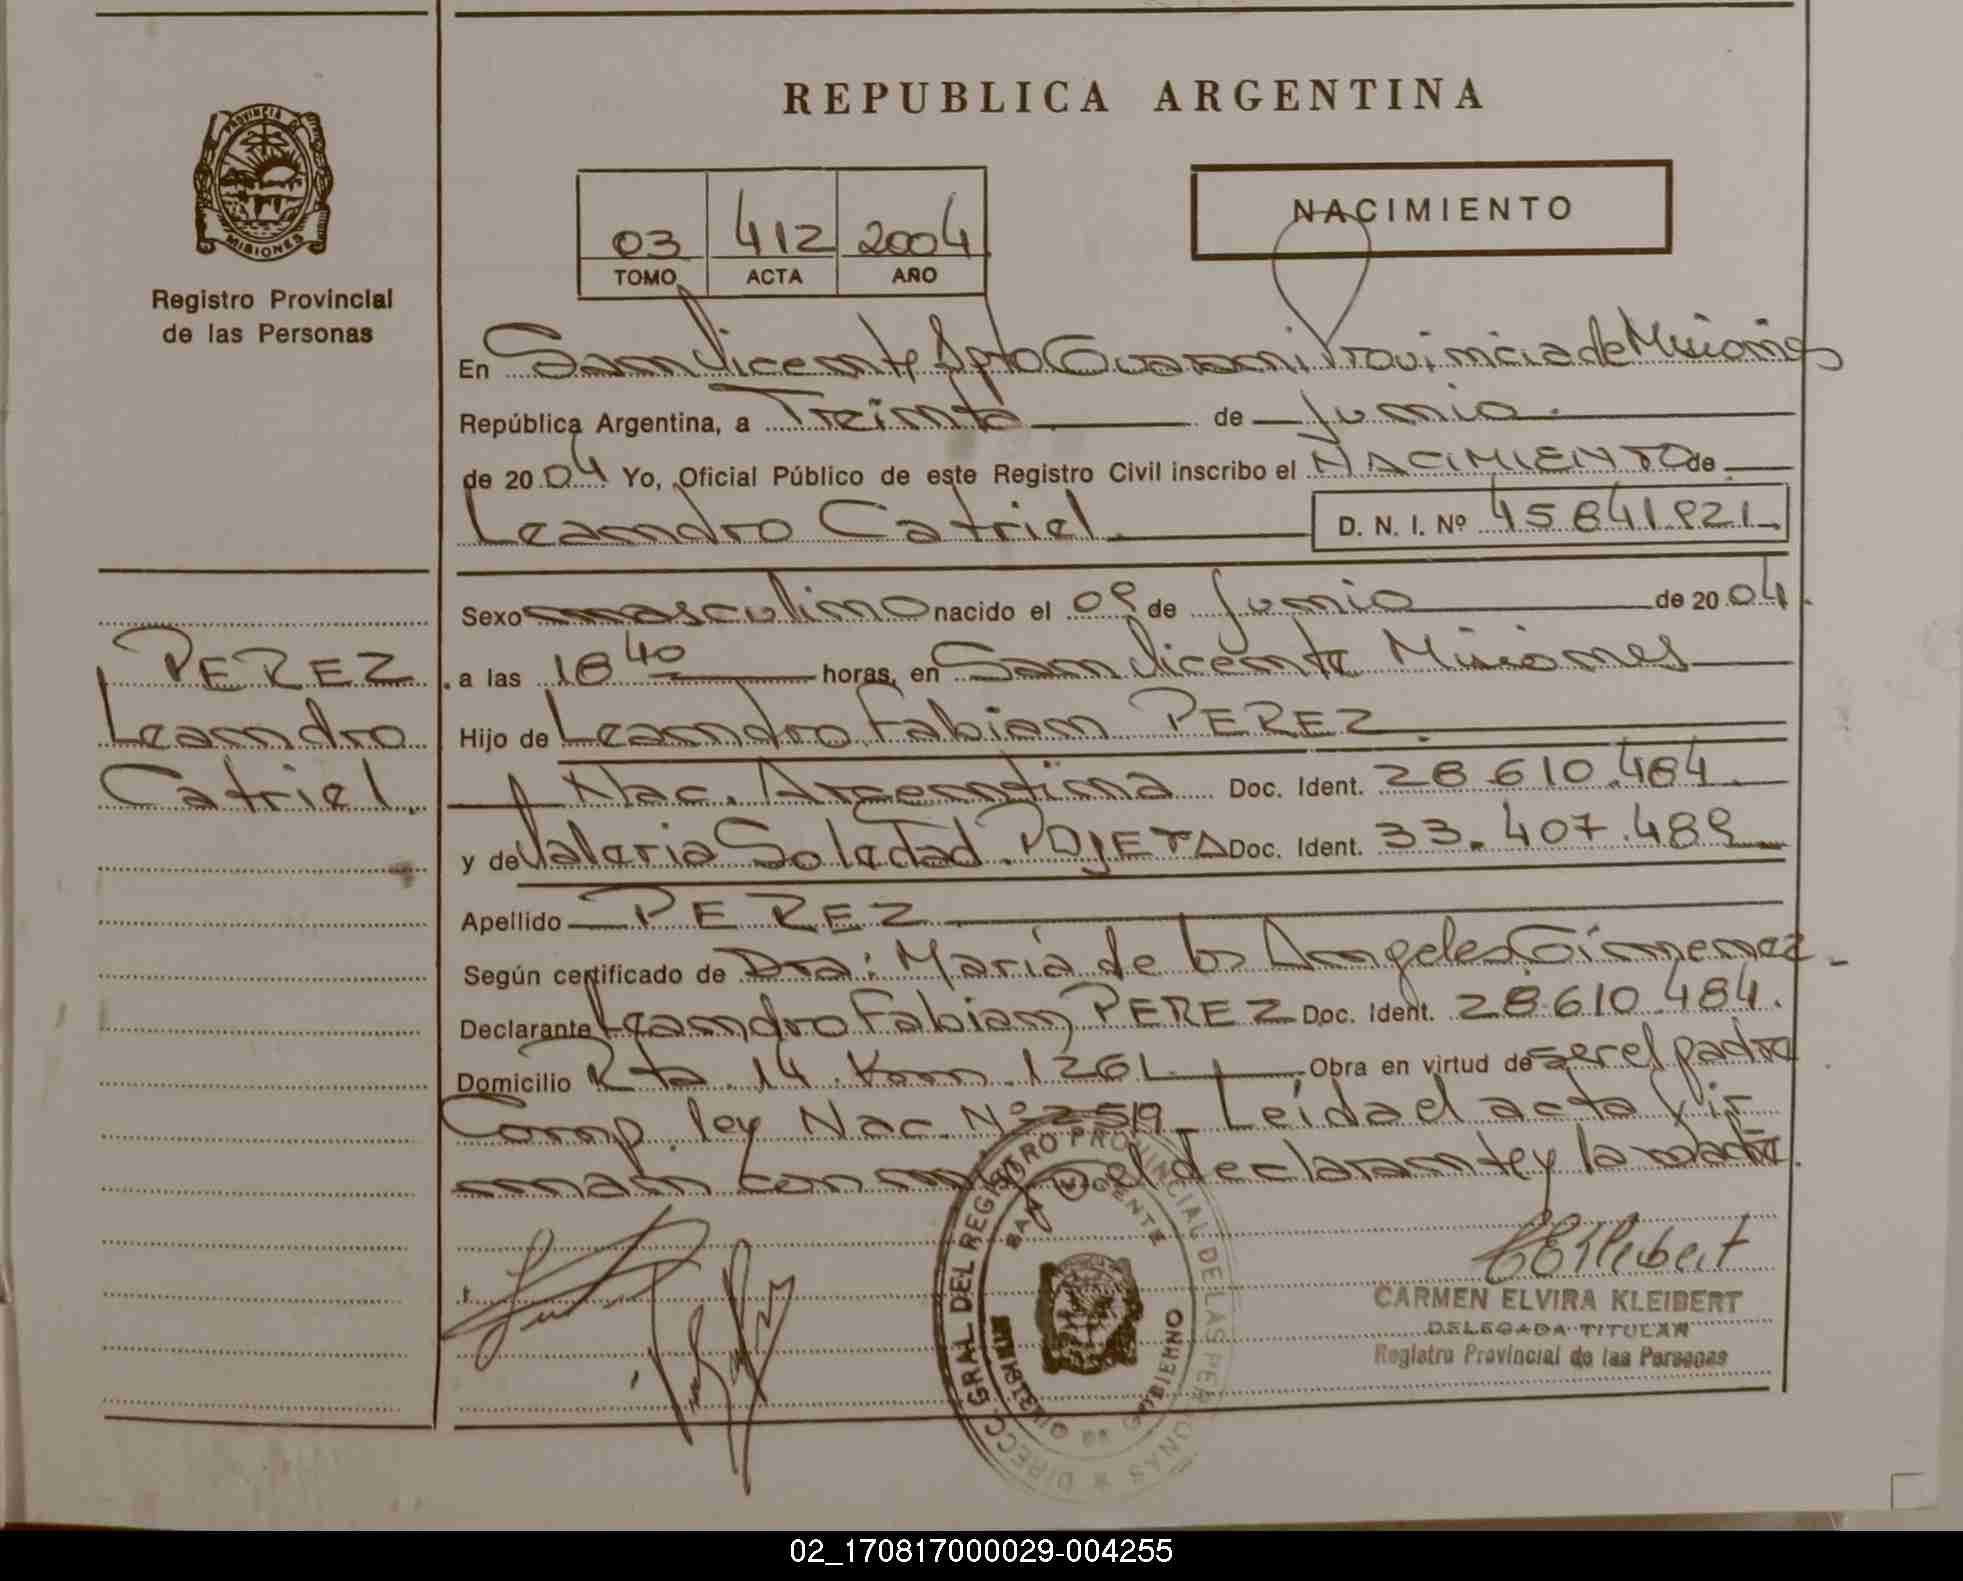 REPUBLICA ARGENTINA
PROVINCIA DE
MISIONES
Registro Provincial
de las Personas
NACIMIENTO
03 412 2004
TOMO ACTA AÑO
En San Vicente Dpto Guarani Provincia de Misiones
República Argentina, a Treinta de Junio.
de 2004 Yo, Oficial Público de este Registro Civil inscribo el NACIMIENTO de
Leandro Catriel D. N. I. Nº 45841921
Sexo masculino nacido el 09 de Junio de 2004
a las 18 40 horas, en San Vicente Misiones
Hijo de Leandro Fabian PEREZ
Nac. Argentina Doc. Ident. 28.610.484
y de Valeria Soledad POJETA Doc. Ident. 33.407.489
Apellido PEREZ
Según certificado de Dra: María de los Angeles Gimenez
Declarante Leandro Fabian PEREZ Doc. Ident. 28.610.484.
Domicilio Rta. 14 Km. 1261 Obra en virtud de ser el padre
Comp. ley Nac. Nº 2519 Leída el acta fir
man conmigo el declarante y la madre.
PEREZ
Leandro
Catriel.
DIRECC. GRAL. DEL REGISTRO PROVINCIAL DE LAS PERSONAS
SAN VICENTE
MINISTERIO DE GOBIERNO
CEKleibert
CARMEN ELVIRA KLEIBERT
DELEGADA TITULAR
Registro Provincial de las Personas
02_170817000029-004255